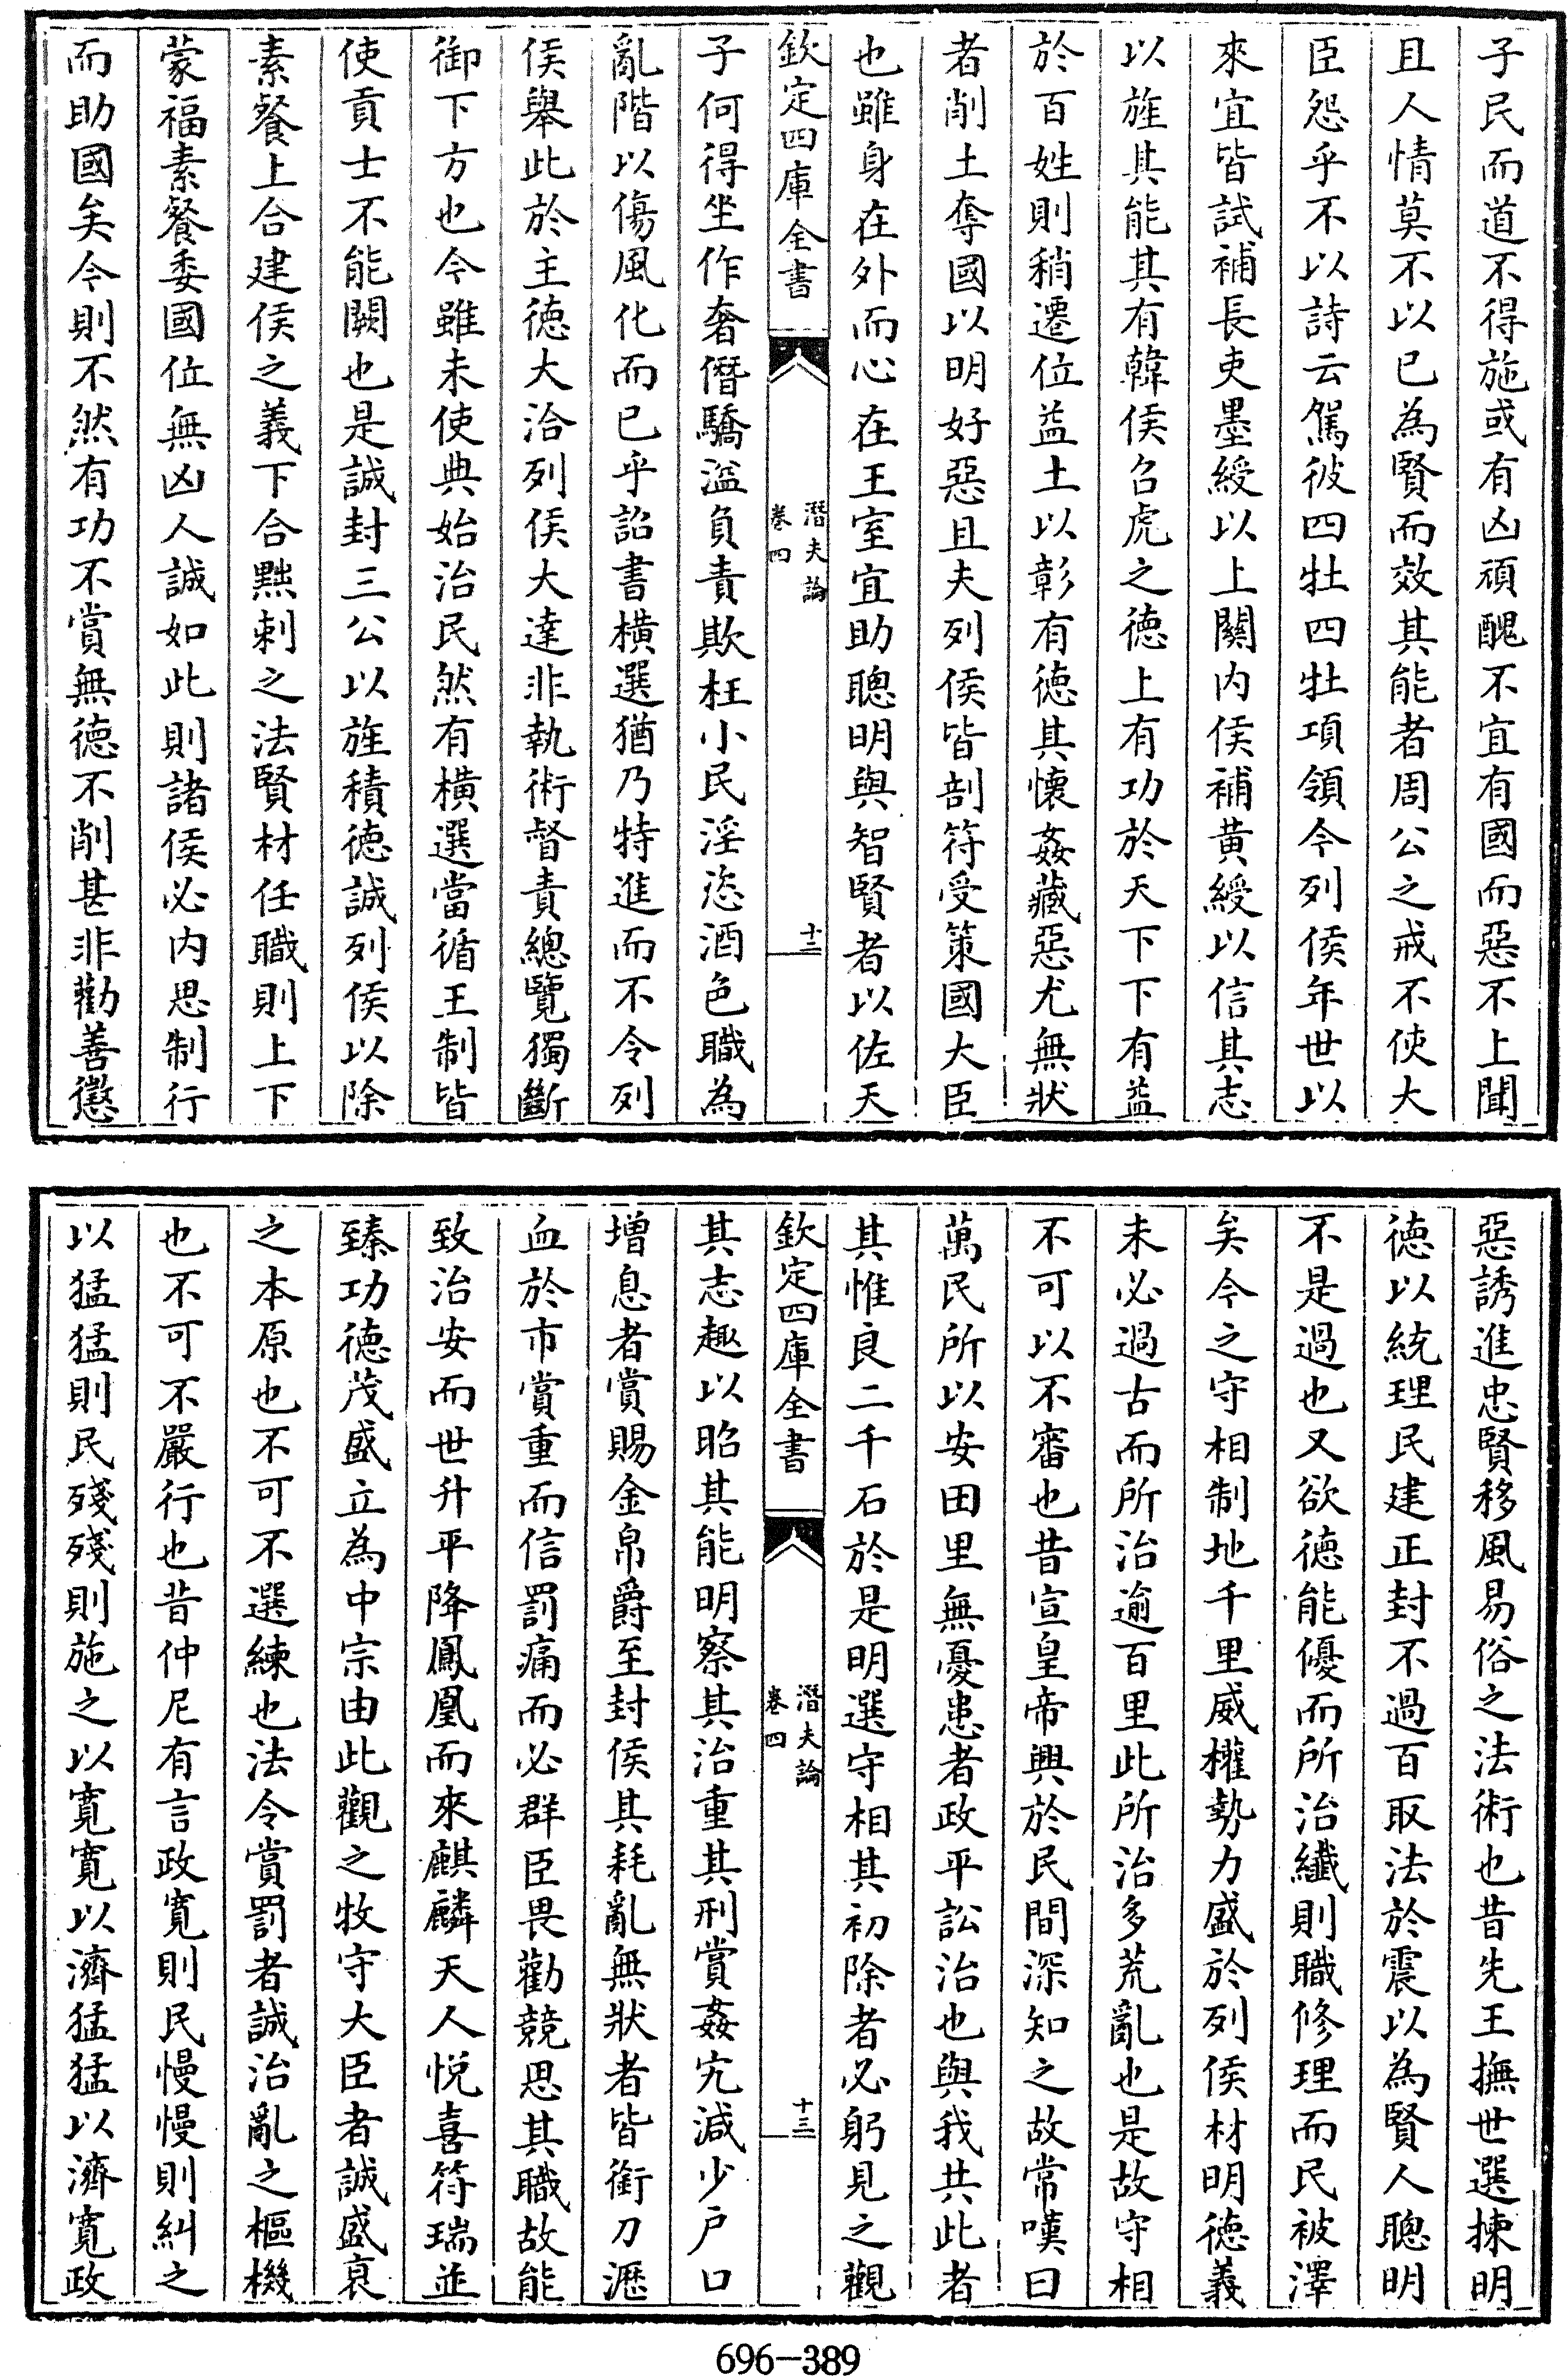 子民而道不得施或有凶頑醜不宜有國而惡不上聞
且人情莫不以已為賢而效其能者周公之戒不使大
臣怨乎不以詩云駕彼四牡四牡項領今列侯年世以
來宜皆試補長吏墨綬以上關内侯補黄綬以信其志
以旌其能其有韓侯召虎之徳上有功於天下下有益
於百姓則稍遷位益土以彰有徳其懐姦藏惡尤無狀
者削土奪國以明好惡且夫列侯皆剖符受策國大臣
也雖身在外而心在王室宜助聰明與智賢者以佐天
欽定四庫全書
潛夫論
卷四
十二
子何得坐作奢僭驕溢負責欺枉小民淫恣酒色職為
亂階以傷風化而已乎詔書橫選猶乃特進而不令列
侯舉此於主徳大洽列侯大達非執術督責總覽獨斷
御下方也今雖未使典始治民然有橫選當循王制皆
使貢士不能闕也是誠封三公以旌積徳誠列侯以除
素餐上合建侯之義下合黜刺之法賢材任職則上下
蒙福素餐委國位無凶人誠如此則諸侯必内思制行
而助國矣今則不然有功不賞無徳不削甚非勸善懲
惡誘進忠賢移風易俗之法術也昔先王撫世選揀明
徳以統理民建正封不過百取法於震以為賢人聰明
不是過也又欲徳能優而所治纖則職修理而民被澤
矣今之守相制地千里威權勢力盛於列侯材明徳義
未必過古而所治逾百里此所治多荒亂也是故守相
不可以不審也昔宣皇帝興於民間深知之故常嘆曰
萬民所以安田里無憂患者政平訟治也與我共此者
其惟良二千石於是明選守相其初除者必躬見之觀
欽定四庫全書
潛夫論
卷四
十三
其志趣以昭其能明察其治重其刑賞姦宄減少户口
增息者賞賜金帛爵至封侯其耗亂無狀者皆銜刀瀝
血於市賞重而信罰痛而必群臣畏勸競思其職故能
致治安而世升平降鳳凰而來麒麟天人悅喜符瑞並
臻功徳茂盛立為中宗由此觀之牧守大臣者誠盛衰
之本原也不可不選練也法令賞罰者誠治亂之樞機
也不可不嚴行也昔仲尼有言政寛則民慢慢則糾之
以猛猛則民殘殘則施之以寛寛以濟猛猛以濟寛政
696-389